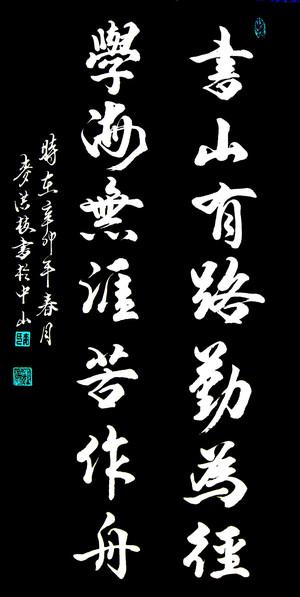 書山有路勤為徑
學海無涯苦作舟
時在辛卯年春月
麥浩穆書於中山